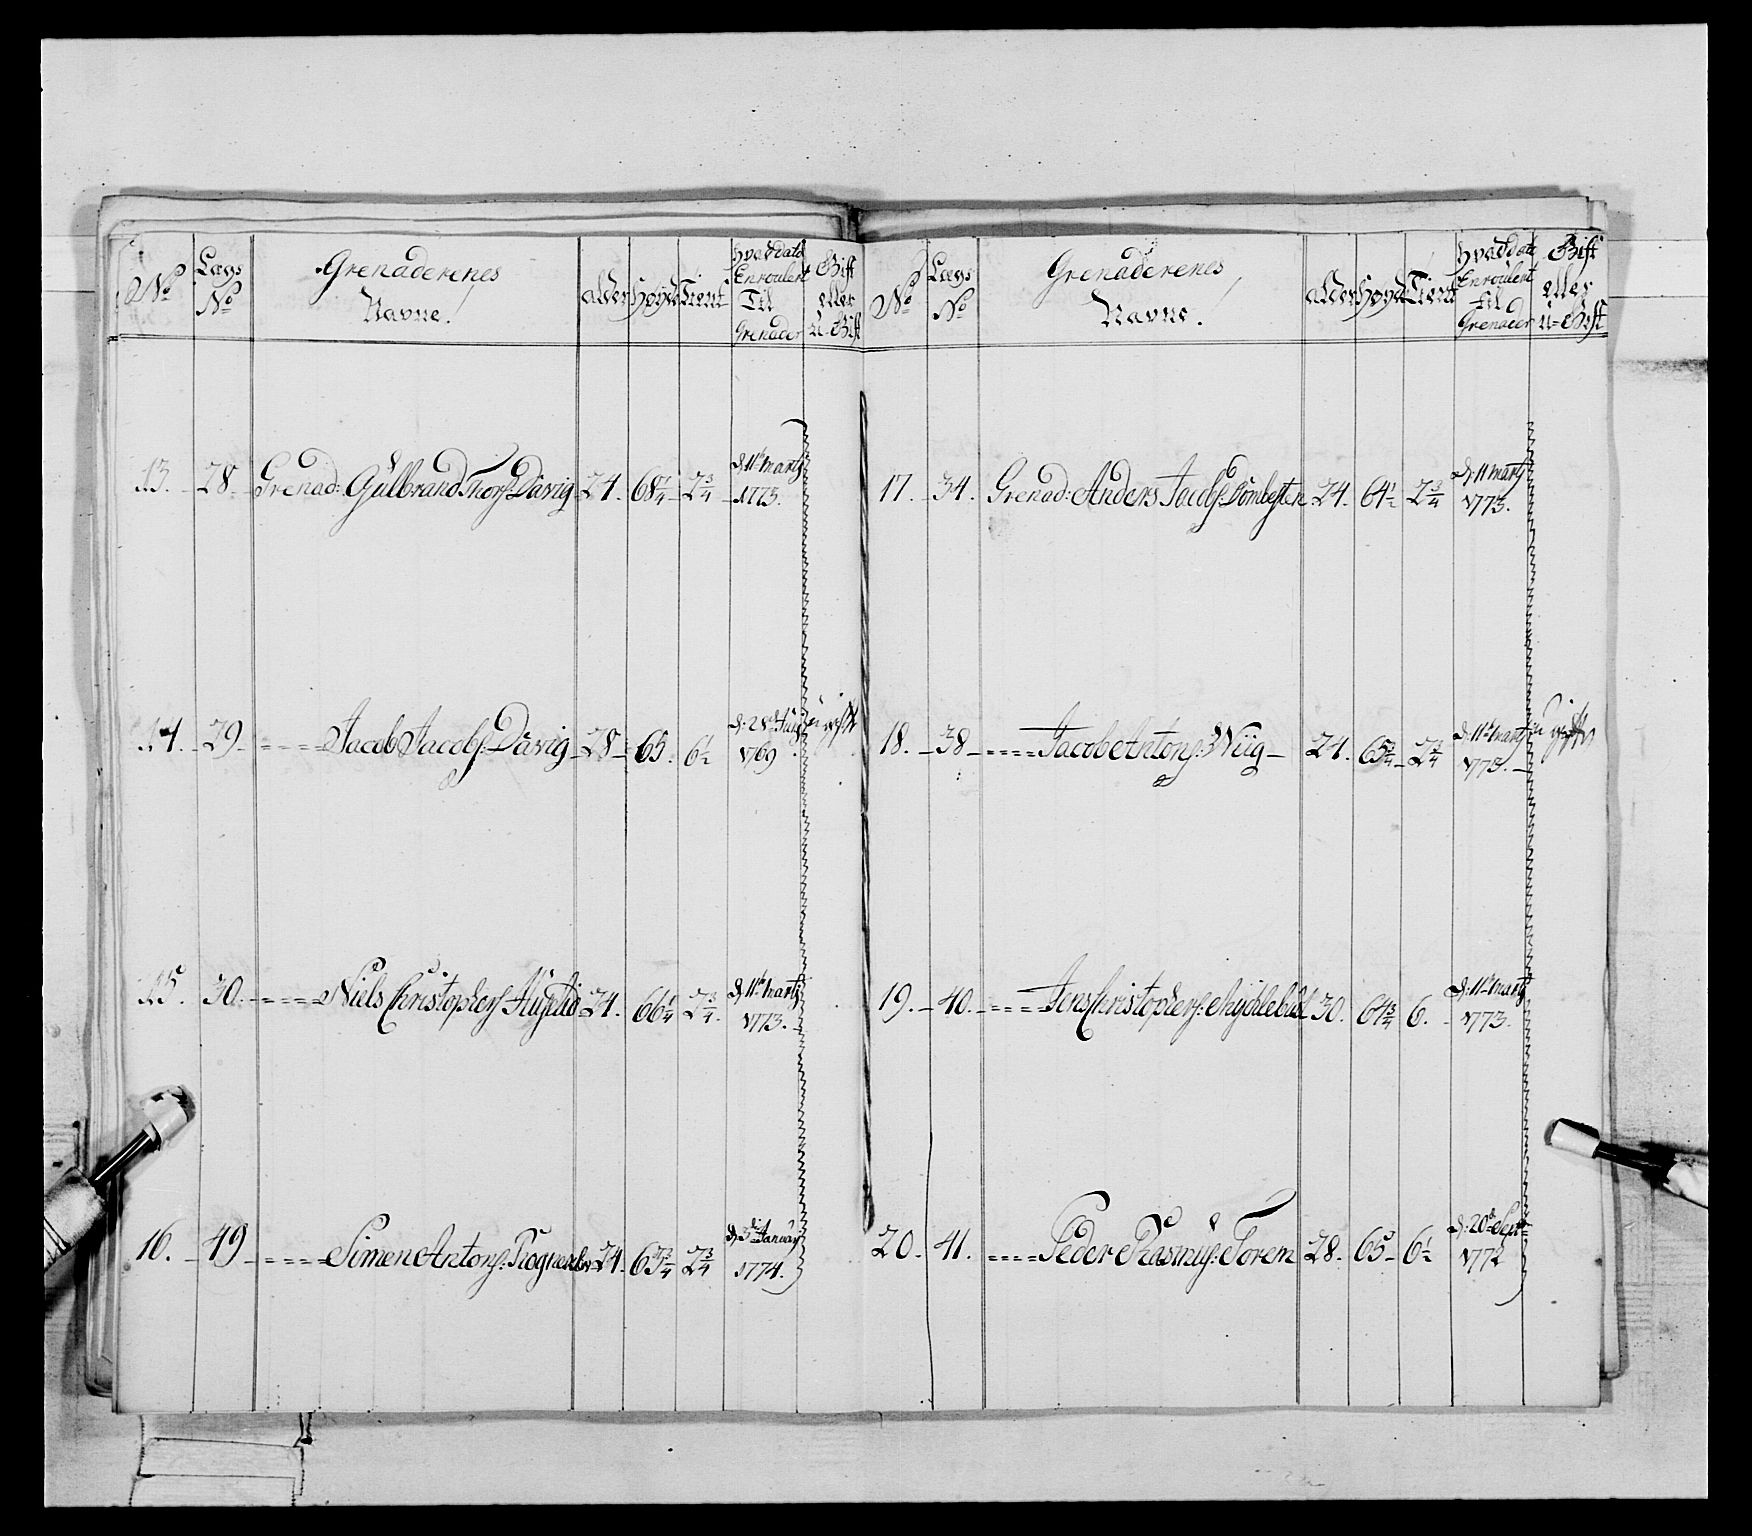 No Lægs No Grenaderenes Navne! Alder Høyde Tient Hvad dato Enroulert Til Grenader Gift eller U-Gift
13. 28 Grenad: Gulbrand Thors: Davig 24. 68 2 3/4 d. 11te Marty 1773.
14. 29 Jacob Jacobs: Davig 28 65. 6 1/2 d. 28 1769 u gift
15. 30. Niels Christophers 24. 66 1/4 2 3/4 d. 11te Marty 1773.
16. 49 Simen Antons: 24. 65 3/4 2 3/4 d. 3die January 1774.
No Lægs No Grenaderenes Navne. Alder Høyde Tient Hvad dato Enroulert til Grenader Gift eller U=Gift
17. 34. Grenad: Anders Jacobs: 24. 64 1/2 2 3/4 d. 11 Marty 1773.
18. 38 Jacob Antons: Wiig 24. 65 2 3/4 d. 11te Marty 1773. u gift
19. 40. Jens Christophers: Myhlebust 30. 64 3/4 6. d. 11te Marty 1773.
20. 41. Peder Rasmus: Torem 28. 65 6 1/2 d. 20de Sept 1772